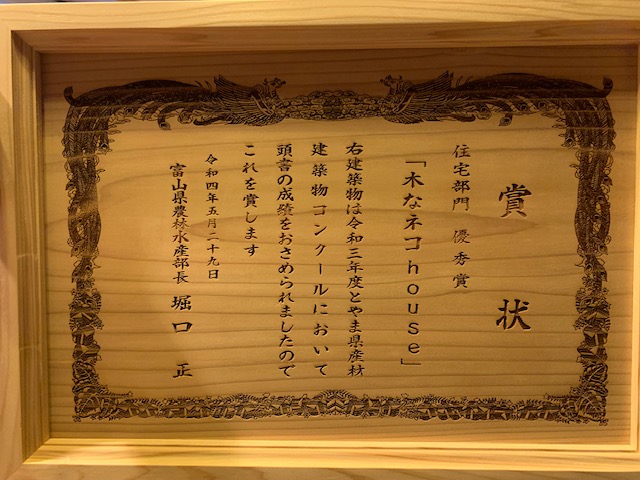 賞状
住宅部門 優秀賞
「木なネコhouse」
右建築物は令和三年度とやま県産材
建築物コンクールにおいて
頭書の成績をおさめられましたので
これを賞します
令和四年五月二十九日
富山県農林水産部長 堀口 正